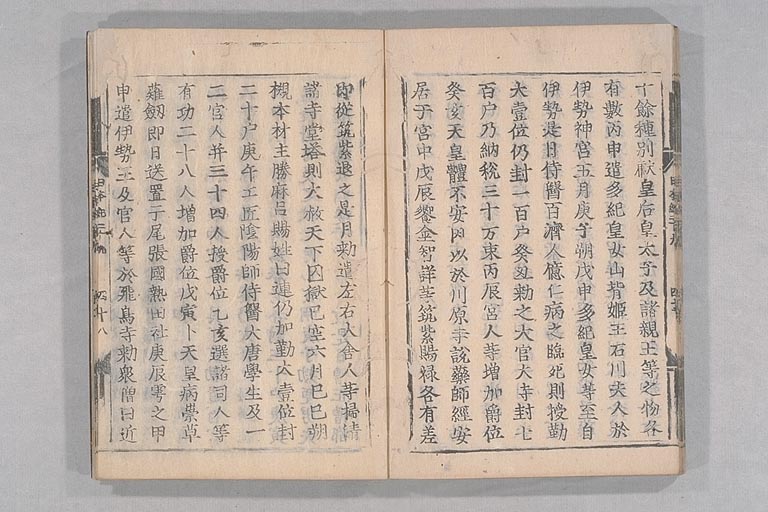 十餘種別獻皇后皇太子及諸親王等之物各
有數丙申遣多紀皇女山背姫王石川夫人於
伊勢神宮五月庚子朔戊申多紀皇女等至自
伊勢是日侍醫百濟人億仁病之臨死則授勤
大壹位仍封一百户癸丑勅之大官大寺封七
百户乃納税三十万束丙辰宮人等増加爵位
癸亥天皇體不安因以於川原寺説藥師經安
居于宮中戊辰饗金智祥等筑紫賜禄各有差
即從筑紫退之是月勅遣左右大舎人等掃清
諸寺堂塔則大赦天下囚獄已空六月己巳朔
槻本村主勝麻呂賜姓曰連仍加勤大壹位封
二十户庚午工匠陰陽師侍醫大唐學生及一
二官人并三十四人授爵位乙亥選諸司人等
有功二十八人増加爵位戊寅卜天皇病祟草
薙劔即日送置于尾張國熱田社庚辰雩之甲
申遣伊勢王及官人等於飛鳥寺勅衆僧曰近